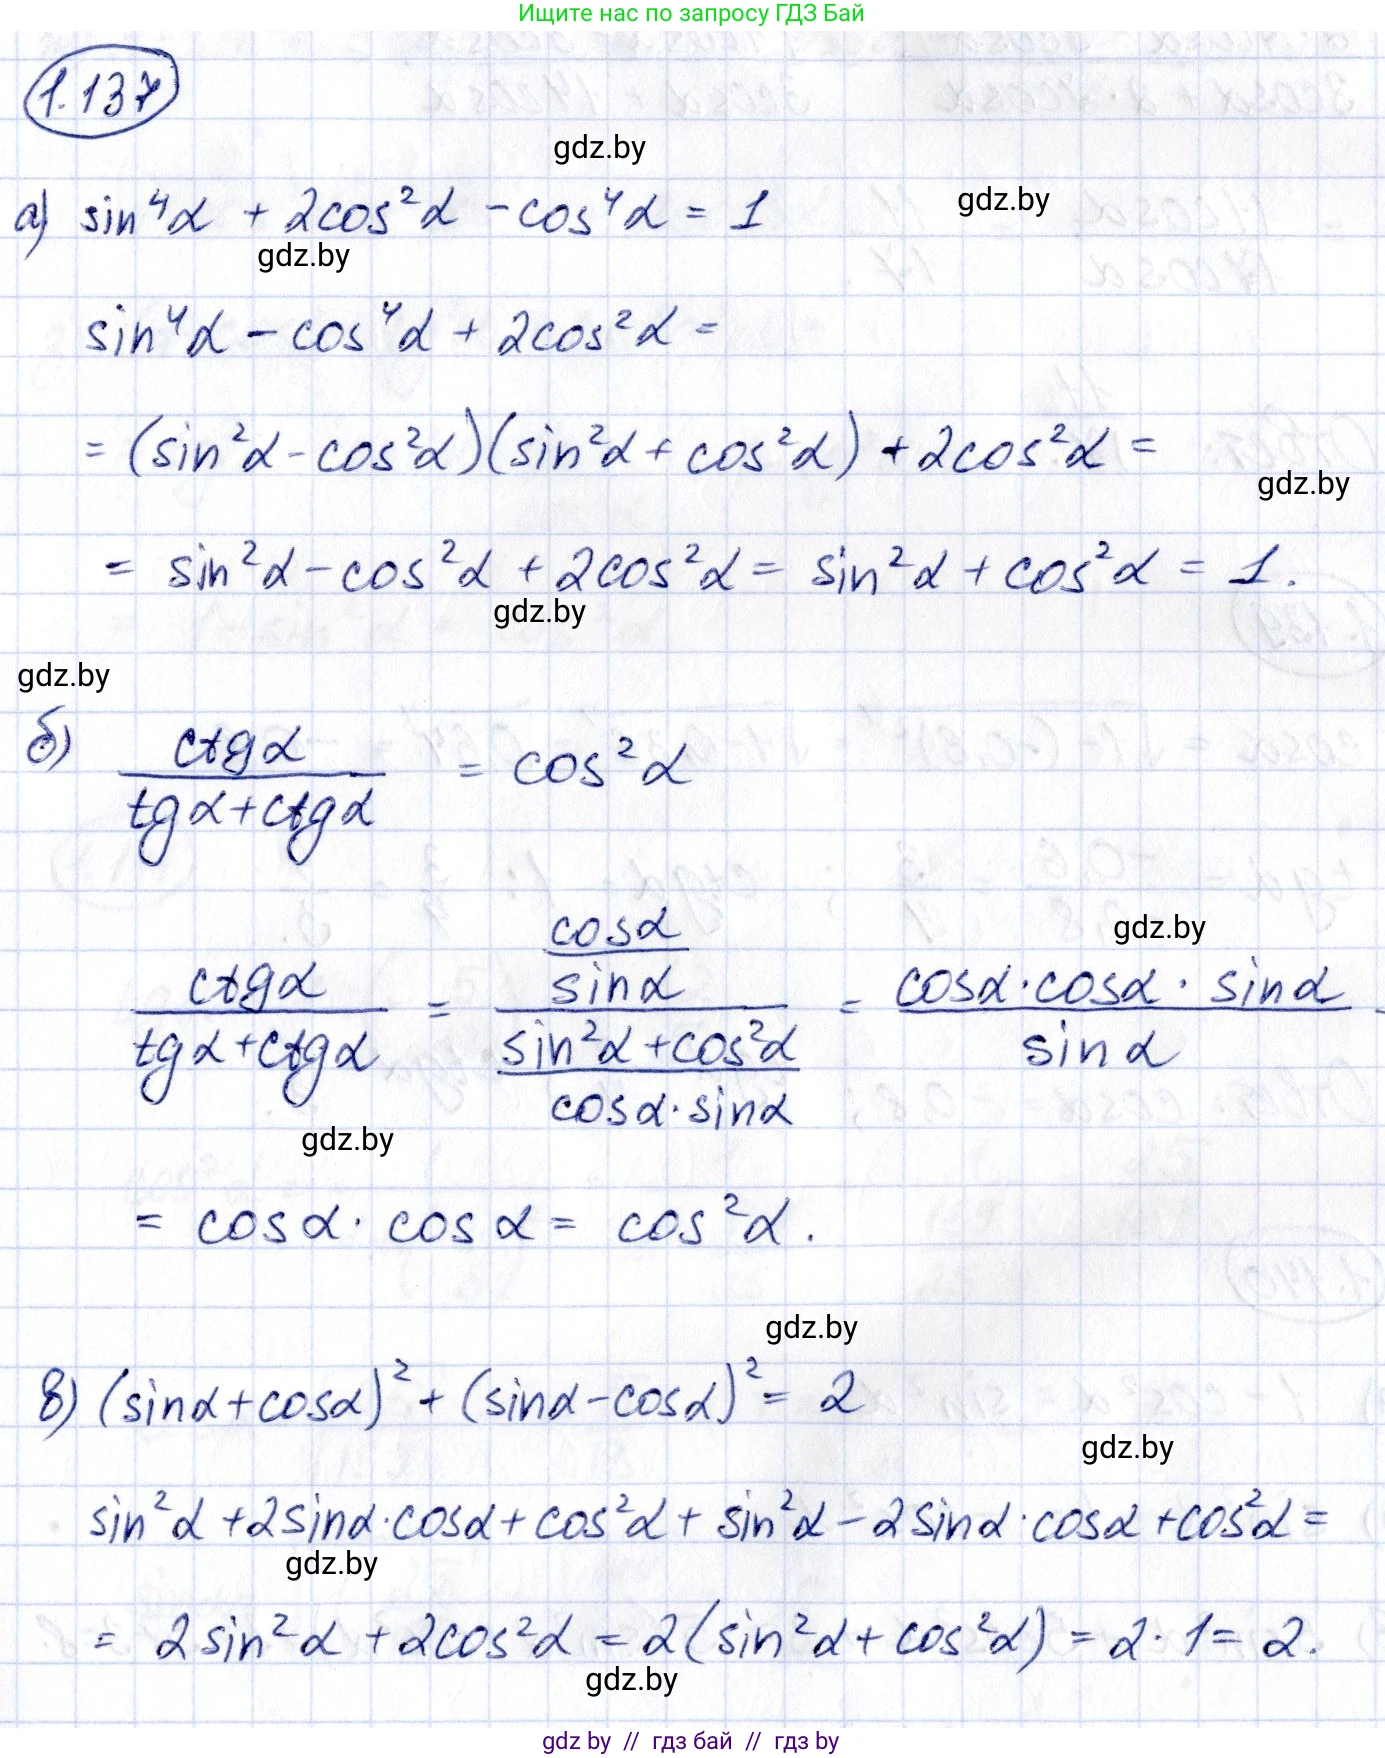 Ищите нас по запросу ГДЗ Бай
1.137
gdz.by
gdz.by
а) sin⁴α + 2cos²α - cos⁴α = 1
gdz.by
sin⁴α - cos⁴α + 2cos²α =
= (sin²α - cos²α)(sin²α + cos²α) + 2cos²α =
gdz.by
= sin²α - cos²α + 2cos²α = sin²α + cos²α = 1.
gdz.by
gdz.by
б) ctgα / (tgα + ctgα) = cos²α
gdz.by
ctgα / (tgα + ctgα) = (cosα / sinα) / ((sin²α + cos²α) / (cosα · sinα)) = (cosα · cosα · sinα) / sinα =
gdz.by
= cosα · cosα = cos²α.
gdz.by
в) (sinα + cosα)² + (sinα - cosα)² = 2
gdz.by
sin²α + 2sinα · cosα + cos²α + sin²α - 2sinα · cosα + cos²α =
gdz.by
= 2sin²α + 2cos²α = 2(sin²α + cos²α) = 2 · 1 = 2.
gdz.by
gdz by // гдз бай // гдз by